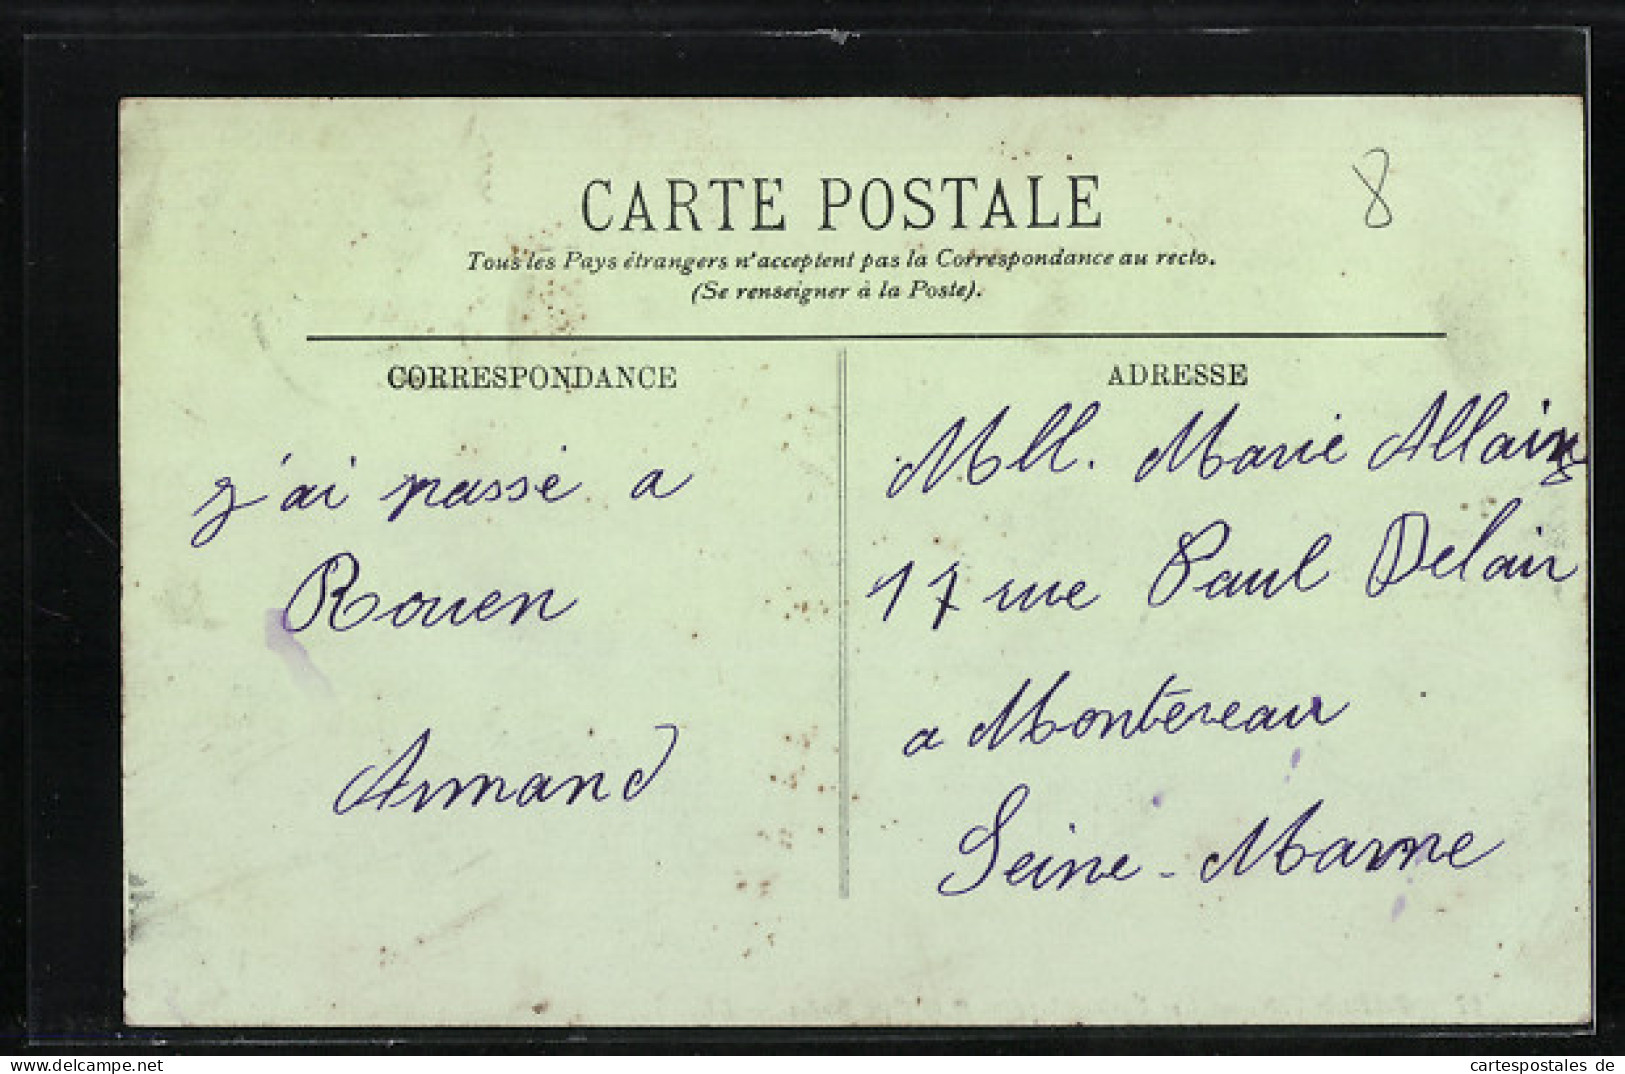 CARTE POSTALE
Tous les Pays étrangers n'acceptent pas la Correspondance au recto.
(Se renseigner à la Poste).
8
CORRESPONDANCE
j'ai passé a
Rouen
Armand
ADRESSE
Mll. Marie Allain
17 rue Paul Delair
a Montereau
Seine-Marne
cartespostales de